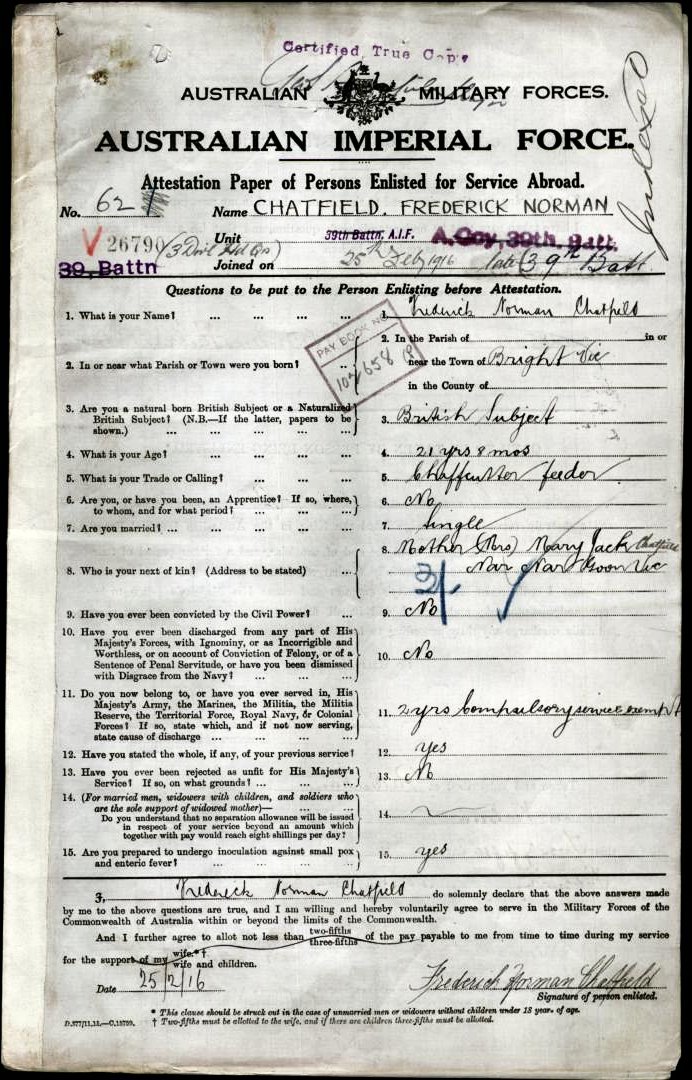 Certified True Copy
AUSTRALIAN MILITARY FORCES.
AUSTRALIAN IMPERIAL FORCE.
Indexed
Attestation Paper of Persons Enlisted for Service Abroad.
No. 62 Name CHATFIELD. FREDERICK NORMAN
V 26790 (3 Divl Hd Qrs) Unit 39th Battn, A.I.F. A. Coy, 39th. Batt.
39. Battn Joined on 25th Feby 1916 late (39th Batt
Questions to be put to the Person Enlisting before Attestation.
1. What is your Name? ... ... ... ... 1. Frederick Norman Chatfield
PAY BOOK No.
107658
2. In or near what Parish or Town were you born? ... 2. In the Parish of in or
near the Town of Bright Vic
in the County of
3. Are you a natural born British Subject or a Naturalized
British Subject? (N.B.—If the latter, papers to be
shown.) ... ... ... ... ... 3. British Subject
4. What is your Age? ... ... ... ... 4. 21 yrs 8 mos
5. What is your Trade or Calling? ... ... ... 5. Chaffcutter feeder
6. Are you, or have you been, an Apprentice? If so, where,
to whom, and for what period? ... ... ... 6. No
7. Are you married? ... ... ... ... ... 7. Single
8. Who is your next of kin? (Address to be stated) ... 8. Mother (Mrs) Mary Jack Chatfield
Nar Nar Goon Vic
9. Have you ever been convicted by the Civil Power? ... 9. No
10. Have you ever been discharged from any part of His
Majesty's Forces, with Ignominy, or as Incorrigible and
Worthless, or on account of Conviction of Felony, or of a
Sentence of Penal Servitude, or have you been dismissed
with Disgrace from the Navy? ... ... ... 10. No
11. Do you now belong to, or have you ever served in, His
Majesty's Army, the Marines, the Militia, the Militia
Reserve, the Territorial Force, Royal Navy, or Colonial
Forces? If so, state which, and if not now serving,
state cause of discharge ... ... ... ... 11. 2 yrs Compulsory service exempt
12. Have you stated the whole, if any, of your previous service? 12. yes
13. Have you ever been rejected as unfit for His Majesty's
Service? If so, on what grounds? ... ... ... 13. No
14. (For married men, widowers with children, and soldiers who
are the sole support of widowed mother)—
Do you understand that no separation allowance will be issued
in respect of your service beyond an amount which
together with pay would reach eight shillings per day? 14.
15. Are you prepared to undergo inoculation against small pox
and enteric fever? ... ... ... ... 15. yes
I, Frederick Norman Chatfield do solemnly declare that the above answers made
by me to the above questions are true, and I am willing and hereby voluntarily agree to serve in the Military Forces of the
Commonwealth of Australia within or beyond the limits of the Commonwealth.
And I further agree to allot not less than two-fifths three-fifths of the pay payable to me from time to time during my service
for the support of my wife.*† wife and children.
Date 25/2/16 Frederick Norman Chatfield
Signature of person enlisted.
* This clause should be struck out in the case of unmarried men or widowers without children under 18 years of age.
D.577/11.15.—C.15799. † Two-fifths must be allotted to the wife, and if there are children three-fifths must be allotted.